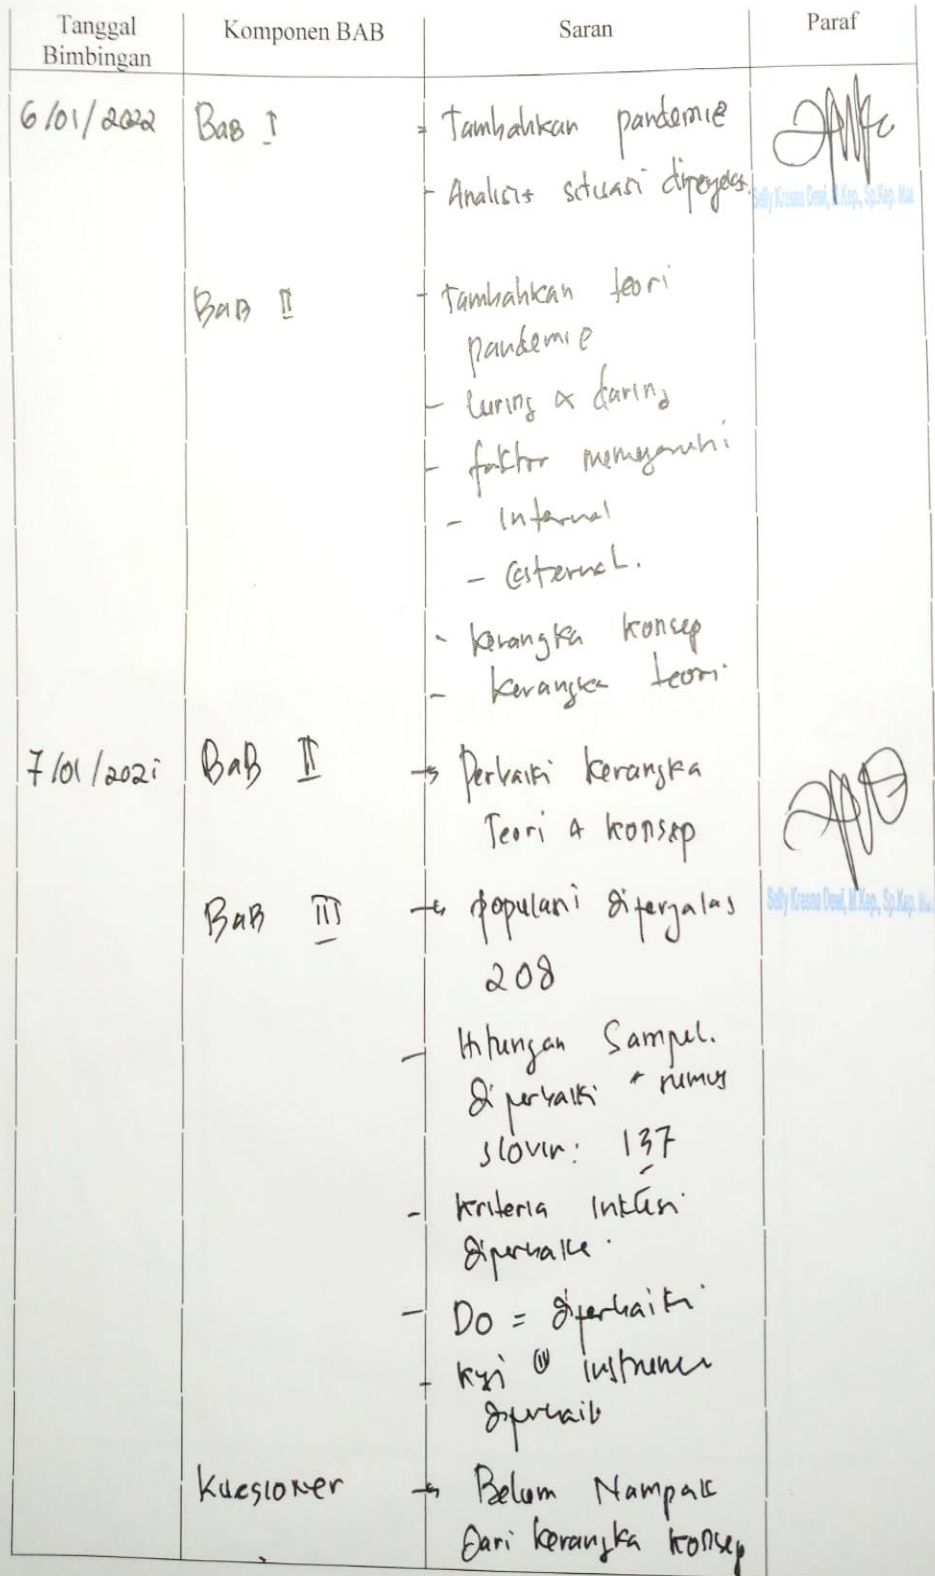 Tanggal Bimbingan Komponen BAB Saran Paraf
6/01/2022 Bab I - Tambahkan pandemie
- Analisis situasi diperjelas.
Selly Kresna Dewi, M.Kep., Sp.Kep. Mat
BaB II - Tambahkan teori
pandemie
- luring & daring
- faktor memengaruhi
- Internal
- Eksternal.
- kerangka konsep
- kerangka teori
7/01/2021 BaB II → Perbaiki kerangka
Teori & konsep
Selly Kresna Dewi, M.Kep., Sp.Kep. Mat
BaB III → populasi diperjelas
208
- Hitungan Sampel.
diperbaiki + rumus
slovin: 137
- kriteria Inklusi
diperbaiki.
- DO = diperbaiki
- instrumen
diperbaiki
Kuesioner → Belum Nampak
Dari kerangka konsep